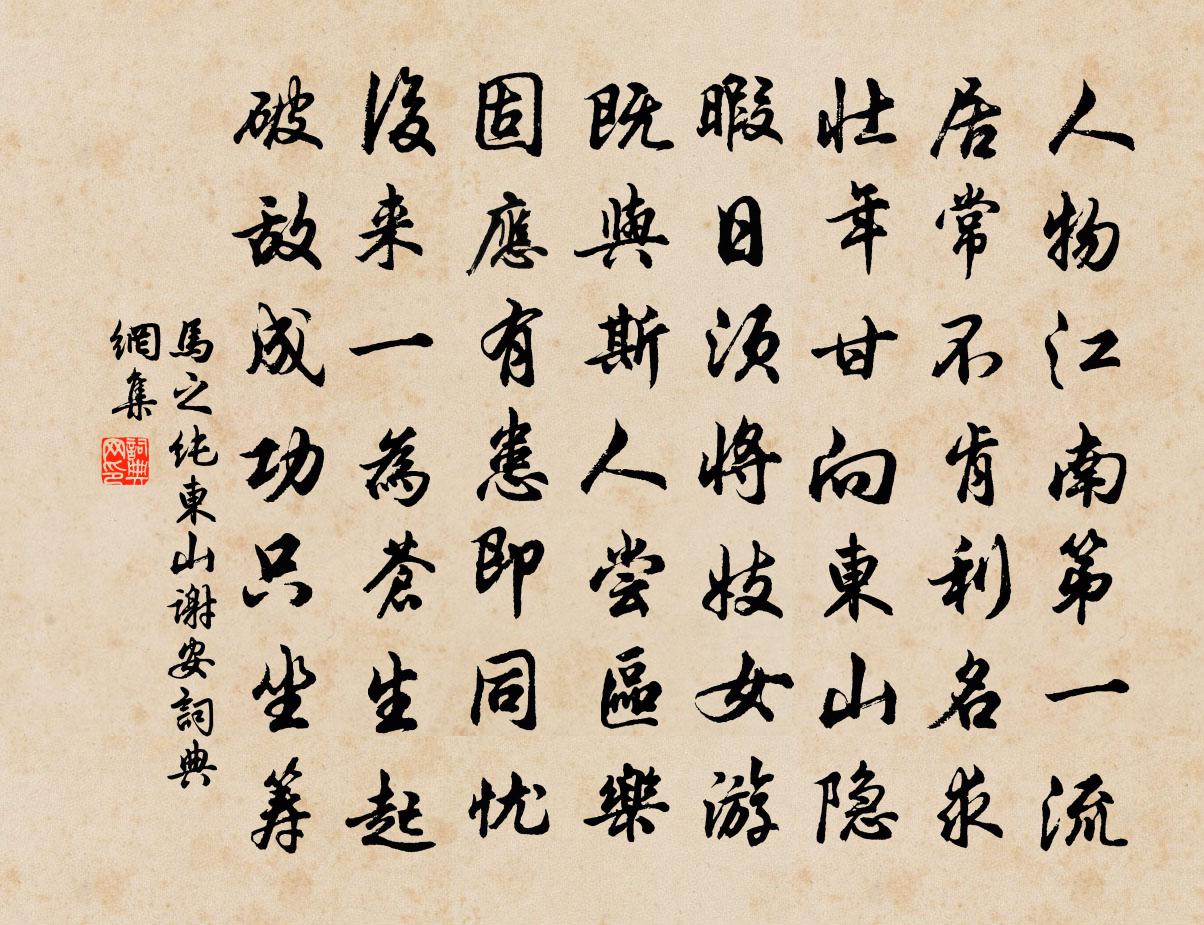 人物江南第一流
居常不肯利名求
壮年甘向東山隐
暇日须将妓女游
既與斯人尝區樂
固應有患即同忧
後来一為蒼生起
破敌成功只坐筹
馬之纯東山謝安詞典
網集
詞典
网印